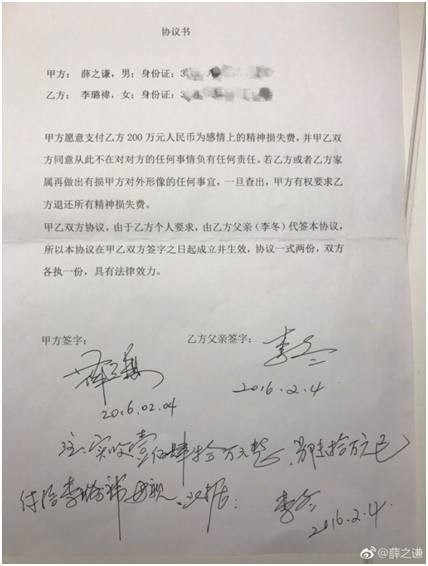 协议书
甲方： 薛之谦，男；身份证：3
乙方： 李璐禕，女；身份证：3
甲方愿意支付乙方 200 万元人民币为感情上的精神损失费，并甲乙双
方同意从此不在对对方的任何事情负有任何责任。若乙方或者乙方家
属再做出有损甲方对外形像的任何事宜，一旦查出，甲方有权要求乙
方退还所有精神损失费。
甲乙双方协议，由于乙方个人要求，由乙方父亲（李冬）代签本协议，
所以本协议在甲乙双方签字之日起成立并生效，协议一式两份，双方
各执一份，具有法律效力。
甲方签字： 乙方父亲签字：
薛之谦 李冬
2016.02.04 2016.2.4
注：实收壹佰肆拾万元整，陆拾万元已
付给李璐禕母亲
李冬
2016.2.4
@薛之谦